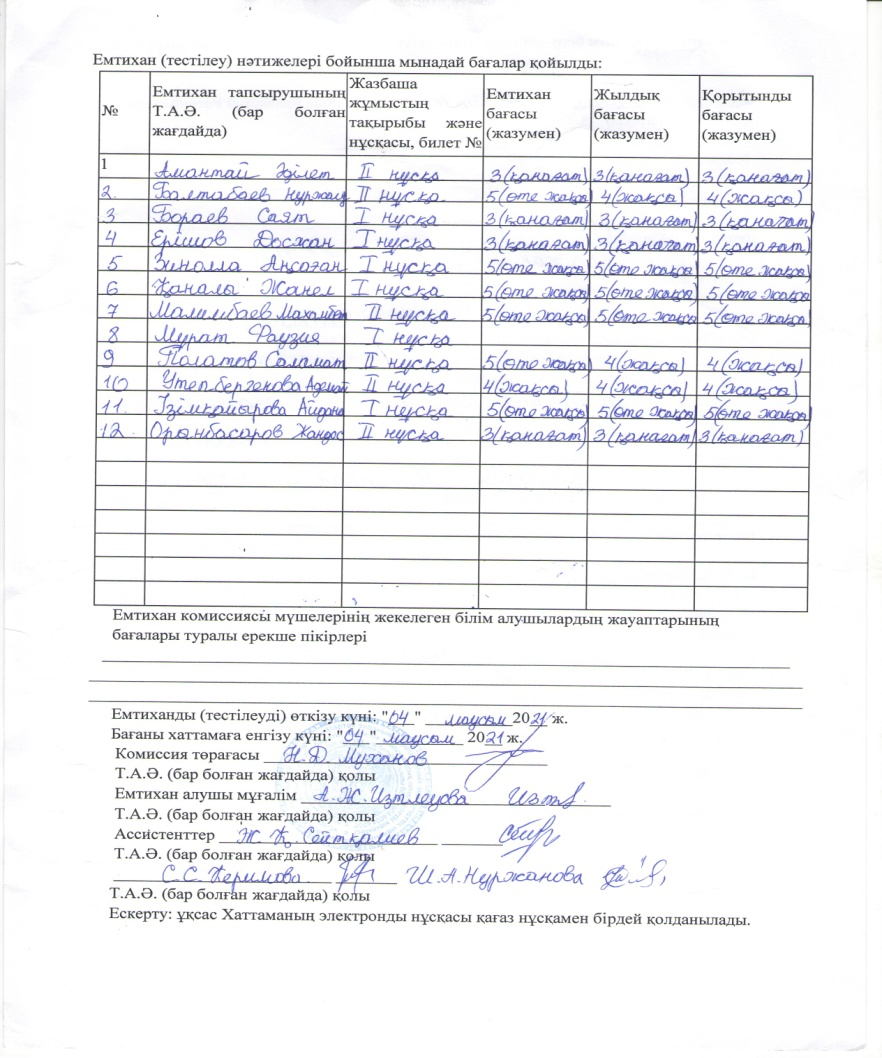 Емтихан (тестілеу) нәтижелері бойынша мынадай бағалар қойылды:
№ Емтихан тапсырушының Т.А.Ә. (бар болған жағдайда) Жазбаша жұмыстың тақырыбы және нұсқасы, билет № Емтихан бағасы (жазумен) Жылдық бағасы (жазумен) Қорытынды бағасы (жазумен)
1 Амантай Әділет II нұсқа 3(қанағат) 3(қанағат) 3(қанағат)
2. Балтабаев Нұржан II нұсқа 5(өте жақсы) 4(жақсы) 4(жақсы)
3 Бораев Саят I нұсқа 3(қанағат) 3(қанағат) 3(қанағат)
4 Ершов Досжан I нұсқа 3(қанағат) 3(қанағат) 3(қанағат)
5 Зинолла Аңсаған I нұсқа 5(өте жақсы) 5(өте жақсы) 5(өте жақсы)
6 Қаналы Жанел I нұсқа 5(өте жақсы) 5(өте жақсы) 5(өте жақсы)
7 Малимбаев Махамбет II нұсқа 5(өте жақсы) 5(өте жақсы) 5(өте жақсы)
8 Мұрат Фаузия I нұсқа
9 Полатов Саламат II нұсқа 5(өте жақсы) 4(жақсы) 4(жақсы)
10 Утепбергенова II нұсқа 4(жақсы) 4(жақсы) 4(жақсы)
11. Ізімқайырова Айдана I нұсқа 5(өте жақсы) 5(өте жақсы) 5(өте жақсы)
12. Орынбасаров Жандос II нұсқа 3(қанағат) 3(қанағат) 3(қанағат)
Емтихан комиссиясы мүшелерінің жекелеген білім алушылардың жауаптарының
бағалары туралы ерекше пікірлері
Емтиханды (тестілеуді) өткізу күні: "04" маусым 2021 ж.
Бағаны хаттамаға енгізу күні: "04" маусым 2021 ж.
Комиссия төрағасы Н.Д. Муханов
Т.А.Ә. (бар болған жағдайда) қолы
Емтихан алушы мұғалім А.Ж.Изтлеуова
Т.А.Ә. (бар болған жағдайда) қолы
Ассистенттер Ж.Қ.Сейтқалиев
Т.А.Ә. (бар болған жағдайда) қолы
С.С.Керимова Ш.А.Нуржанова
Т.А.Ә. (бар болған жағдайда) қолы
Ескерту: ұқсас Хаттаманың электронды нұсқасы қағаз нұсқамен бірдей қолданылады.